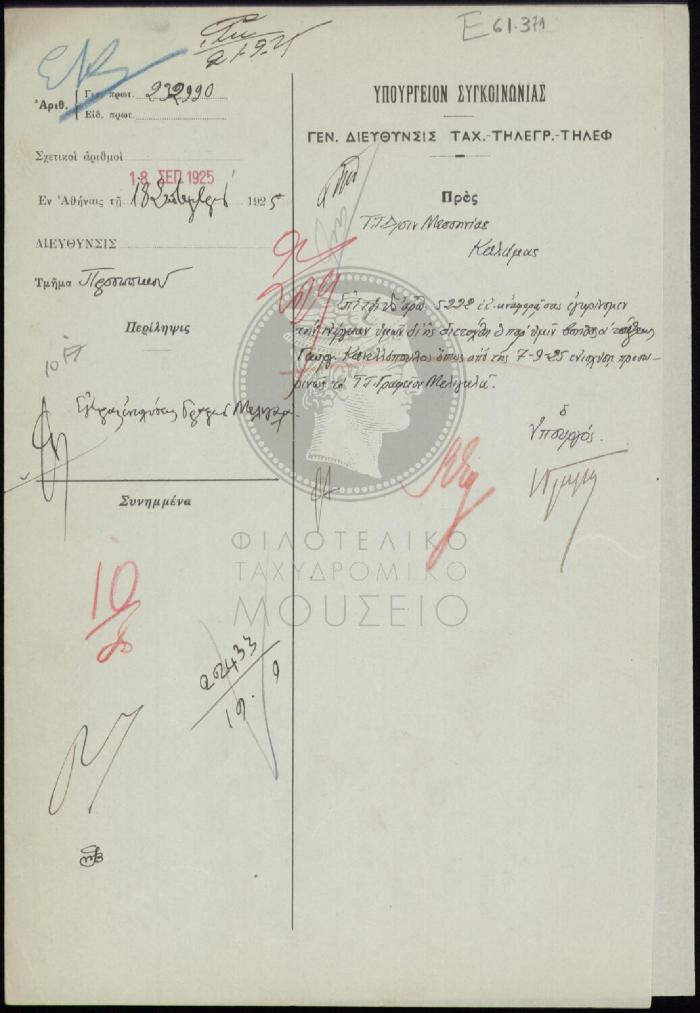 E 61.371
21-9-25
Ἀριθ.
Γεν. πρωτ. 232990
Εἰδ. πρωτ.
Σχετικοὶ ἀριθμοὶ
18 ΣΕΠ 1925
Ἐν Ἀθήναις τῇ 18 Σεπτεμβρίου 1925
ΔΙΕΥΘΥΝΣΙΣ
Τμῆμα Προσωπικοῦ
Περίληψις
Γραφείου Μελιγαλᾶ.
Συνημμένα
10
8
22433
19. 9
ΥΠΟΥΡΓΕΙΟΝ ΣΥΓΚΟΙΝΩΝΙΑΣ
ΓΕΝ. ΔΙΕΥΘΥΝΣΙΣ ΤΑΧ.-ΤΗΛΕΓΡ.-ΤΗΛΕΦ
Πρὸς
Τ.Τ.Δ/σιν Μεσσηνίας
Καλάμας
Ἐπὶ τῆς ὑπ' ἀριθ. 5222 ἐ.ἔ. ἀναφορᾶς σας ἐγκρίνομεν
τὴν ἐνέργειαν ὑμῶν δι' ἧς διετάχθη ὁ παρ' ὑμῖν βοηθὸς
Γεώργ. Κανελλόπουλος ὅπως ἀπὸ τῆς 7-9-25 ἐνισχύσῃ προσω-
ρινῶς τὸ Τ.Τ. Γραφεῖον Μελιγαλᾶ.
ὁ
Ὑπουργός.
ΦΙΛΟΤΕΛΙΚΟ
ΤΑΧΥΔΡΟΜΙΚΟ
ΜΟΥΣΕΙΟ